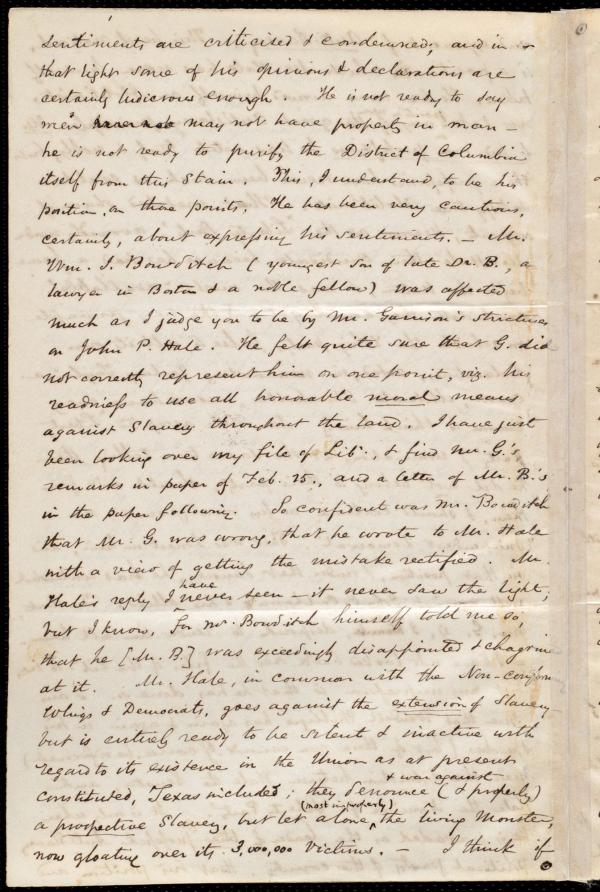 sentiments are criticised & condemned; and in &
that light some of his opinions & declarations are
certainly ludicrous enough. He is not ready to say
men may not have property in man –
he is not ready to purify the District of Columbia
itself from this stain. This, I understand, to be his
position, on those points. He has been very cautious,
certainly, about expressing his sentiments. – Mr.
Wm. I. Bowditch (youngest son of late Dr. B., a
lawyer in Boston & a noble fellow) was affected
much as I judge you to be by Mr. Garrison's strictures
on John P. Hale. He felt quite sure that G. did
not correctly represent him on one point, viz. his
readiness to use all honorable moral means
against Slavery throughout the land. I have just
been looking over my file of Lib., & find Mr. G.'s
remarks in paper of Feb. 25., and a letter of Mr. B.'s
in the paper following. So confident was Mr. Bowditch
that Mr. G. was wrong, that he wrote to Mr. Hale
with a view of getting the mistake rectified. Mr.
Hale's reply I have never seen – it never saw the light,
but I know, for Mr. Bowditch himself told me so,
that he [Mr. B.] was exceedingly disappointed & chagrine
at it. Mr. Hale, in common with the Non-conform
Whigs & Democrats, goes against the extension of Slavery
but is entirely ready to be silent & inactive with
regard to its existence in the Union as at present
constituted, Texas included; they denounce & war against (& properly)
a prospective Slavery, but let alone, (most improperly) the living Monster,
now gloating over its 3,000,000 victims. – I think if